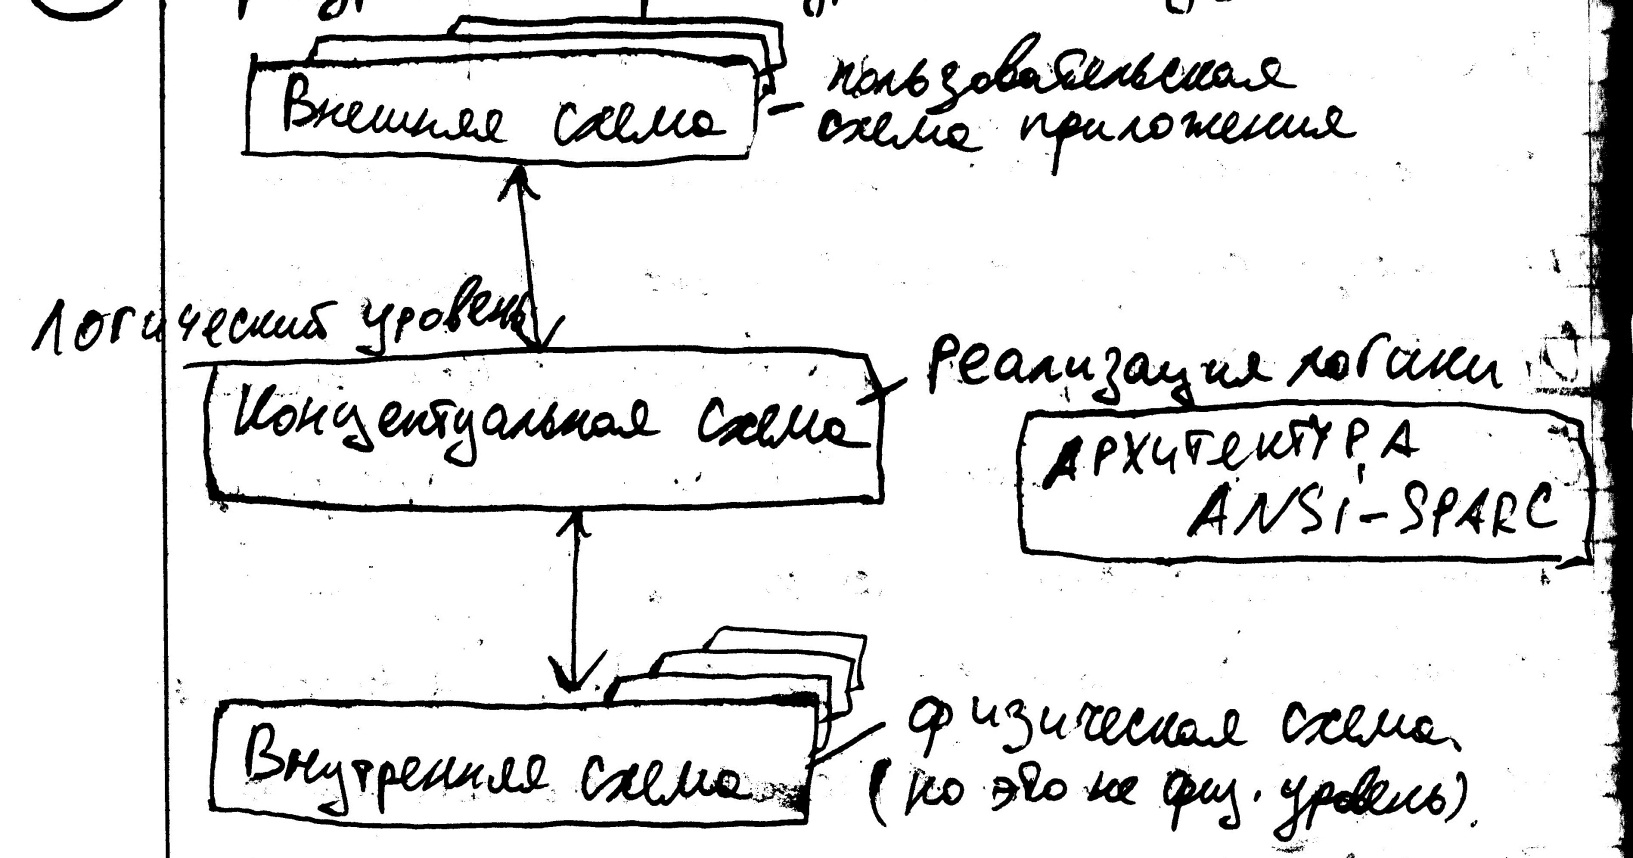 Внешняя схема
– пользовательская
схема приложения
Логический уровень
Концептуальная схема
Реализация логики
АРХИТЕКТУРА
ANSi-SPARC
Внутренняя схема
физическая схема
(но это не физ. уровень).